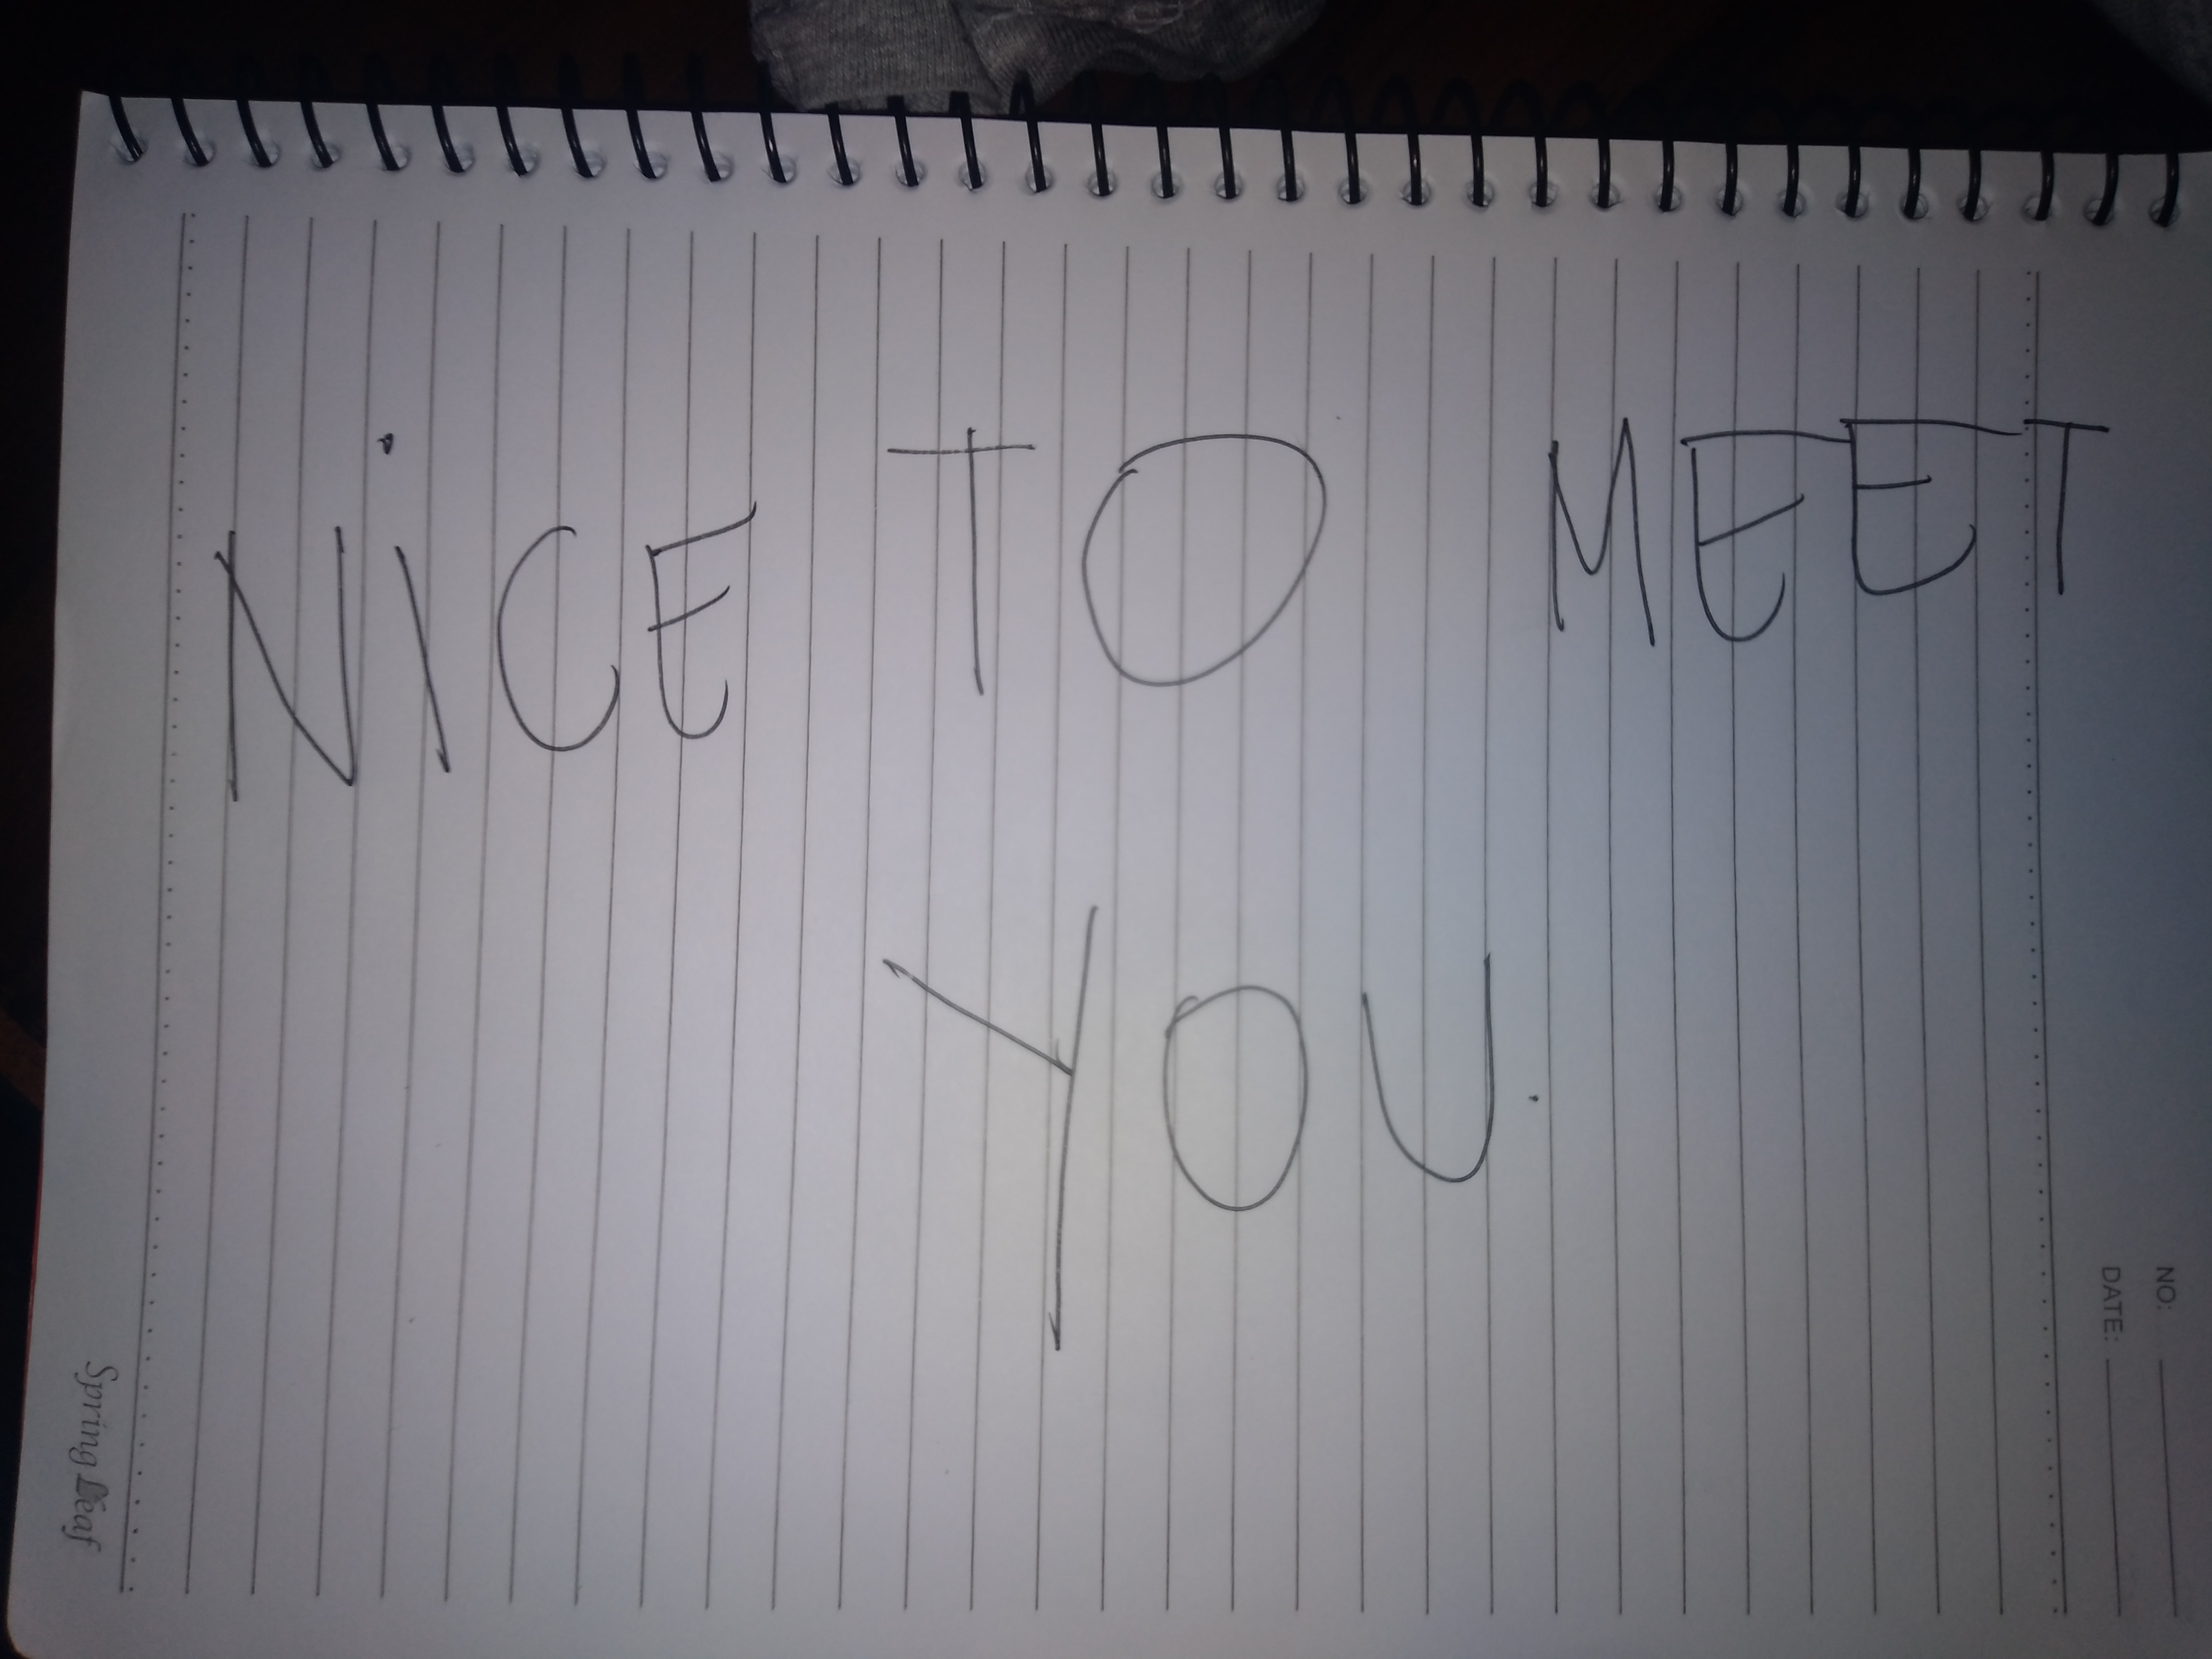 NiCE TO MEET
YOU.
NO:
DATE:
Spring Leaf